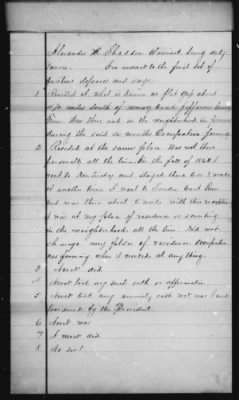 Alexander H. Shadden Claimant being duly
sworn. In answer to the first set of
questions deposes and says.
1 Resided at what is known as flat gap about
miles South of mossy creek Jefferson County
Tenn. Was there and in the neighborhood
during the said six months Occupation farming
2 Resided at the same place. Was not there
personally all the time. In the fall of 1863 I
went to Kentucky and stayed there 6 or 8 weeks
at another time I went to London East Tenn
and was there about 6 weeks with this exception
I was at my place of residence or scouting
in the neighborhood all the time. Did not
change my place of residence. Occupation
was farming when I worked at any thing.
3 Never did
4 Never took any such oath or affirmation
5 Never took any amnesty oath nor was I ever
pardoned by the President.
6 Never was
7 I never did
8 No sir!